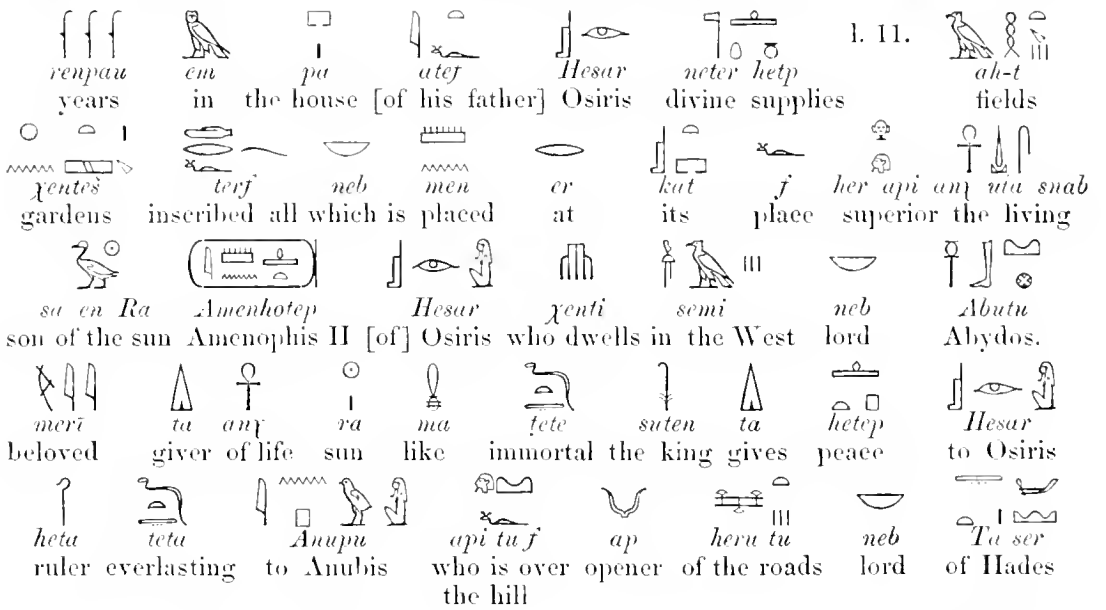 l. 11.
renpau em pa atef Hesar neter hetp ah-t
years in the house [of his father] Osiris divine supplies fields
χenteš terf neb men er kat f her api anχ uta snab
gardens inscribed all which is placed at its place superior the living
sa en Ra Amenhotep Hesar χenti semi neb Abutu
son of the sun Amenophis II [of] Osiris who dwells in the West lord Abydos.
merī ta anχ ra ma tete suten ta hetep Hesar
beloved giver of life sun like immortal the king gives peace to Osiris
heta teta Anupu api tu f ap heru tu neb Ta ser
ruler everlasting to Anubis who is over opener of the roads lord of Hades
the hill